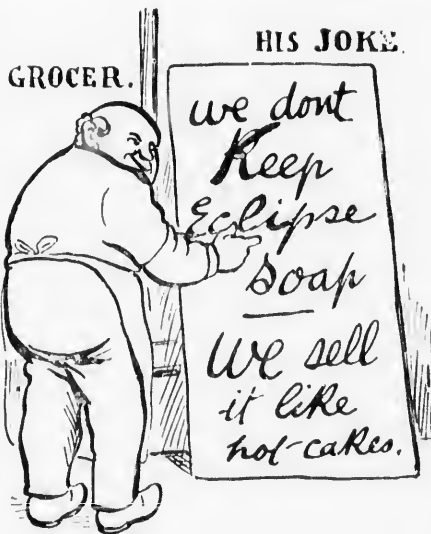 HIS JOKE.
GROCER.
we dont
Keep
Eclipse
Soap
We sell
it like
hot-cakes.